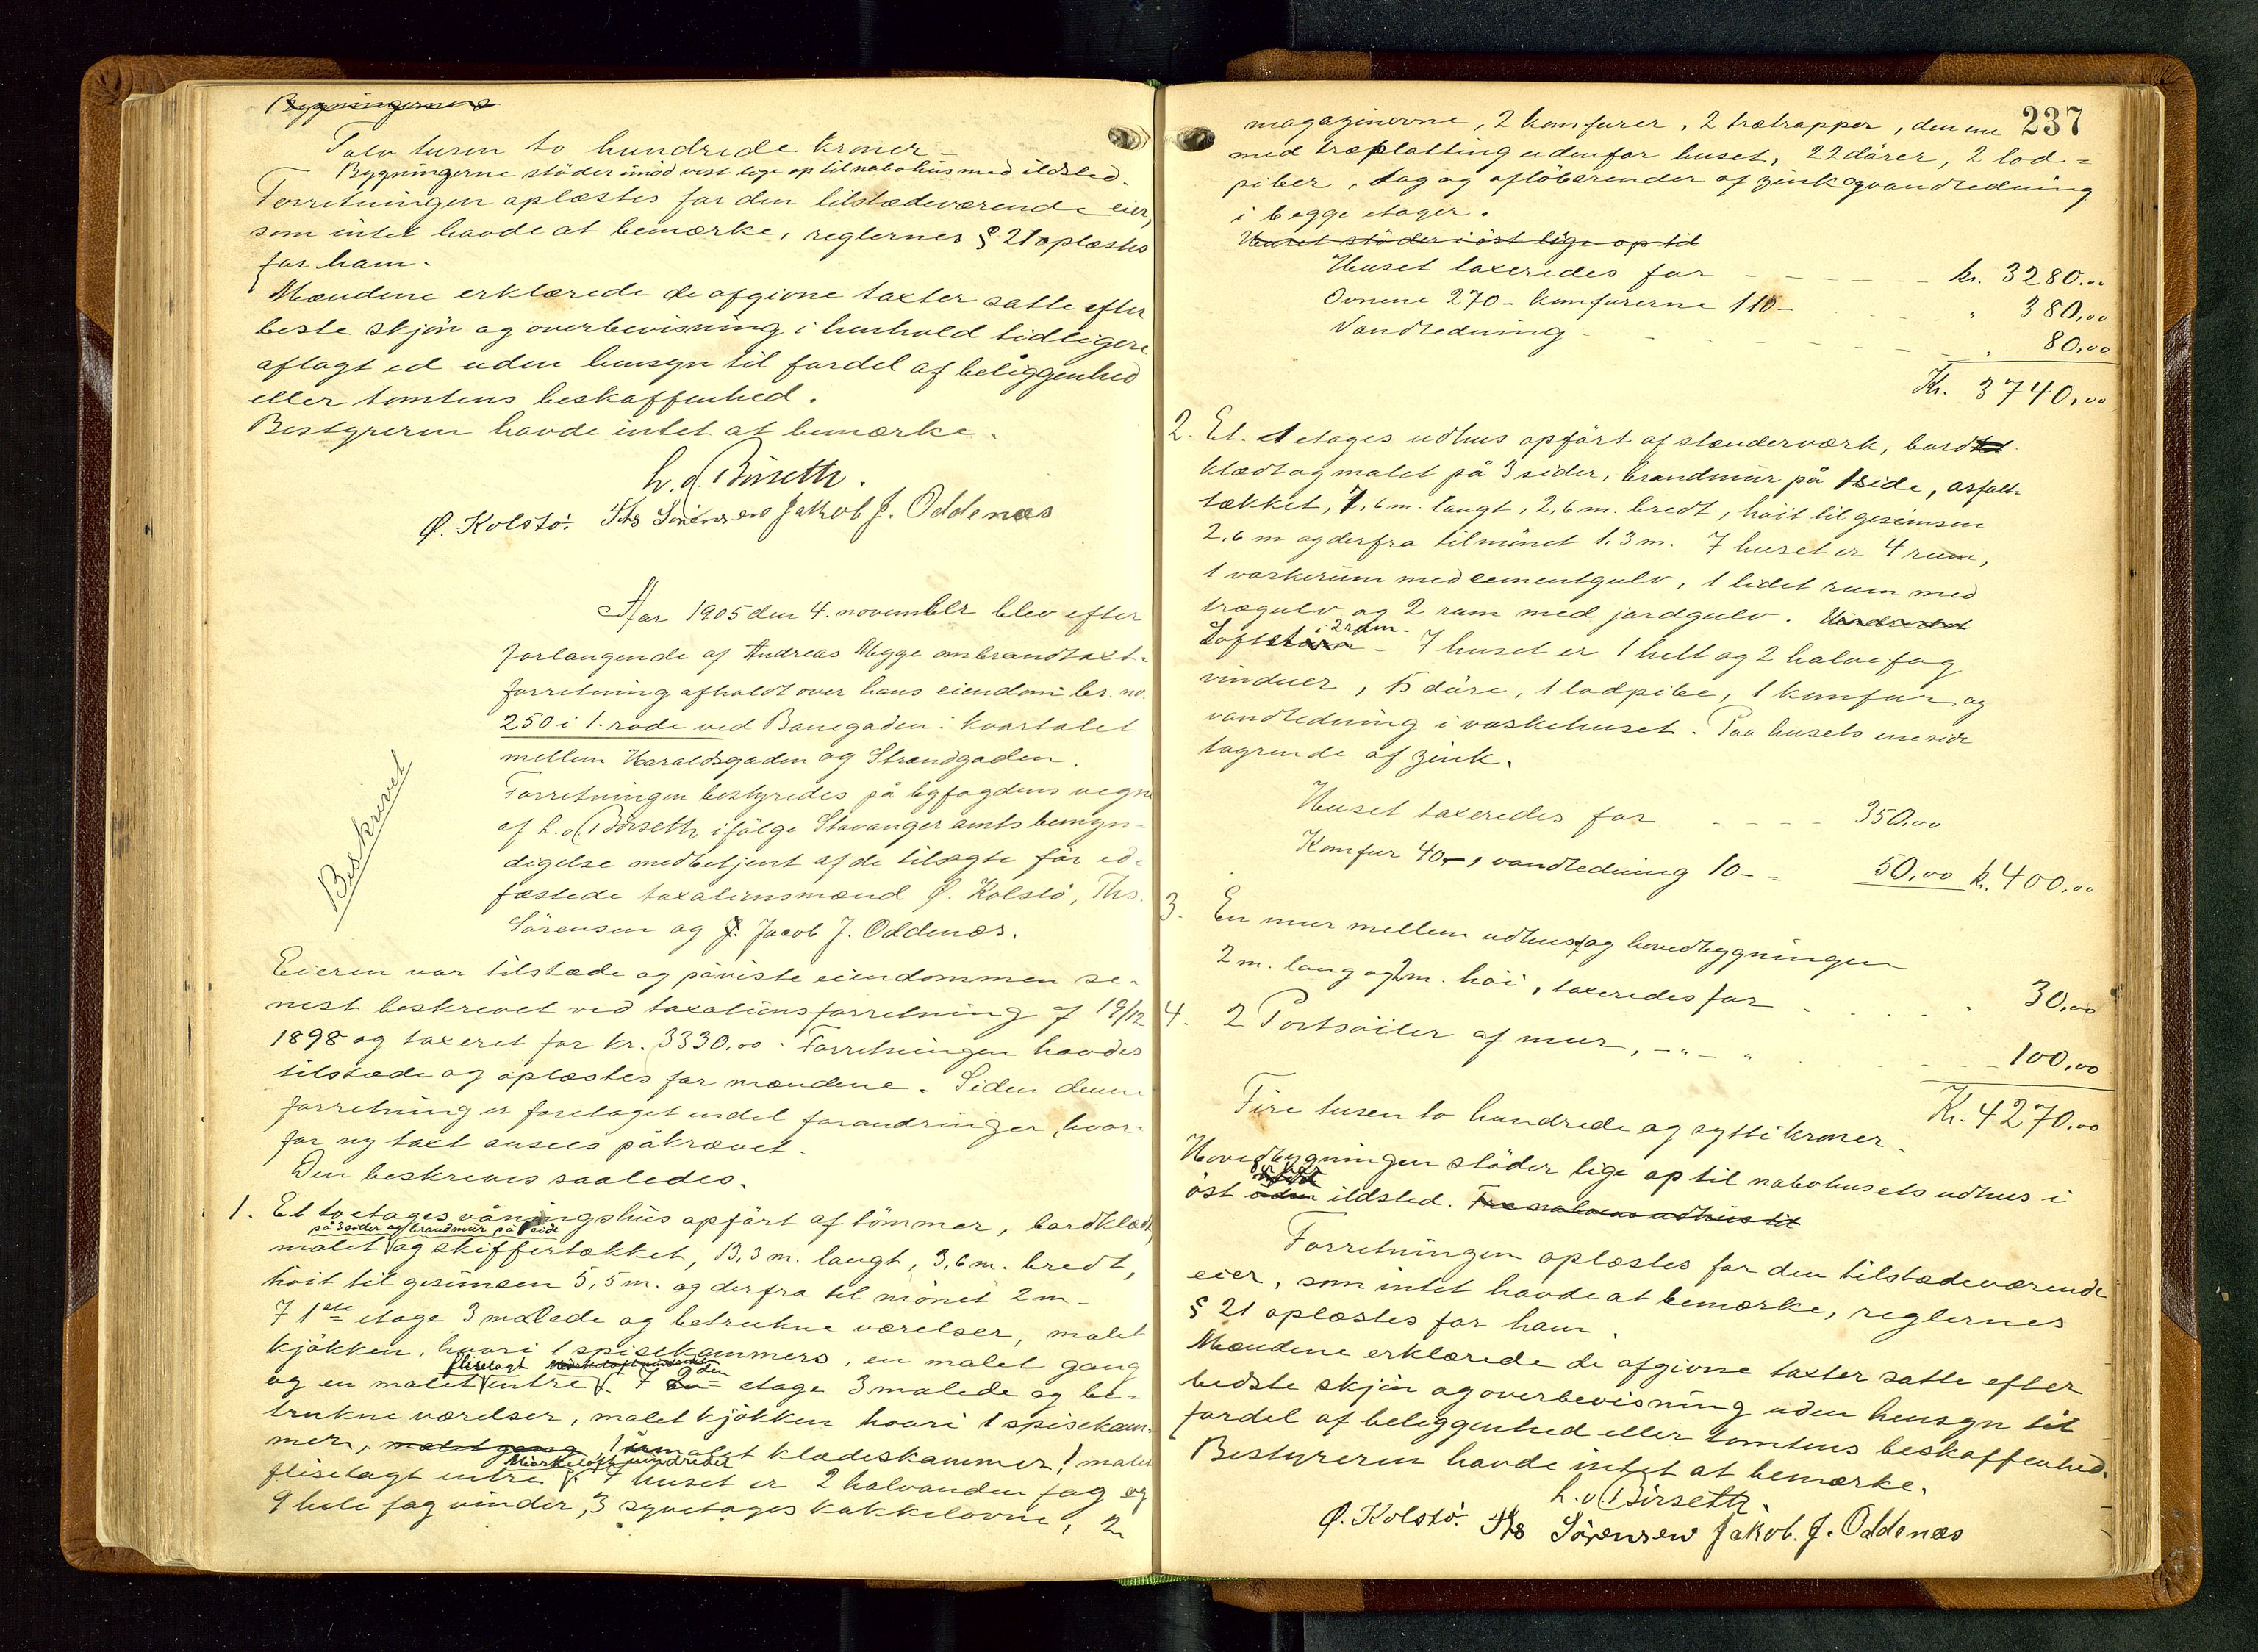 Bygningerne
Tolv tusen to hundrede kroner –
Bygningerne stöder imod vest lige op til nabohus med ildsted.
Forretningen oplæstes for den tilstædeværende eier,
som intet havde at bemærke, reglernes § 21 oplæstes
for ham.
Mændene erklærede de afgivne taxter satte efter
beste skjön og overbevisning i henhold tidligere
aflagt ed uden hensyn til fordel af beliggenhed
eller tomtens beskaffenhed.
Bestyreren havde intet at bemærke.
h. o. Börseth.
Ø. Kolstö. Ths Sörensen Jakob J. Oddenæs
Aar 1905 den 4. november blev efter
forlangende af Andreas Mygge en brandtaxt-
forretning afholdt over hans eiendom br. no.
250 i 1. rode ved Banegaden i kvartalet
mellem Haraldsgaden og Strandgaden.
Forretningen bestyredes på byfogdens vegne
af h. o. Börseth ifölge Stavanger amts bemyn-
digelse medbetjent af de tilsagte för ed-
fæstede taxationsmænd Ø. Kolstö, Ths.
Sörensen og J. Jacob J. Oddenæs.
Beskrivet
Eieren var tilstæde og påviste eiendommen se-
nest beskrevet ved taxationsforretning af 19/12
1898 og taxeret for kr. 3330.00. Forretningen havdes
tilstæde og oplæstes for mændene. Siden denne
forretning er foretaget endel forandringer, hvor-
for ny taxt ansees påkrævet.
Den beskrives saaledes.
1. Et toetages våningshus opfört af tömmer, bordklædt,
på 3 sider og brandmur på 1 side
malet og skiffertækket, 13,3 m. langt, 9,6 m. bredt,
höit til gesimsen 5,5 m. og derfra til mönet 2 m –
I 1ste etage 3 malede og betrukne værelser, malet
kjökken, hvori 1 spisekammers, en malet gang
fliselagt
og en malet entre. I 2den etage 3 malede og be-
trukne værelser, malet kjökken hvori 1 spisekam-
mer, malet gang, 1 umalet klædeskammer, 1 malet
Mörkeloft uindredet
fliselagt entre. I huset er 2 halvanden fag og
9 hele fag vinder, 3 syvetages kakkelovne, 2
237
magazinovne, 2 komfurer, 2 trætrapper, den ene
med træplatting udenfor huset, 22 dörer, 2 lod-
piber, tag og aflöbsrender af zink og vandledning
i begge etager.
Huset stöder i öst lige op til
Huset taxeredes for – – – – kr. 3280.00
Ovnene 270 – komfurerne 110 – . . . " 380,00
Vandledning – – – – – " 80,00
Kr. 3740,00
2. Et 1 etages udhus opfört af stenderværk, bord-
klædt og malet på 3 sider, brandmur på 1 side, asfalt-
tækket, 7,6 m. langt, 2,6 m. bredt, höit til gesimsen
2,6 m og derfra til mönet 1.3 m. I huset er 4 rum,
1 vaskerum med cementgulv, 1 lidet rum med
trægulv og 2 rum med jordgulv.
i 2 rum.
I huset er 1 helt og 2 halve fag
vinduer, 5 döre, 1 lodpibe, 1 komfur og
vandledning i vaskehuset. Paa husets ene side
tagrende af zink.
Huset taxeredes for – – – – 350,00
Komfur 40, –, vandledning 10 – – 50,00 kr. 400,00
3. En mur mellem udhus og hovedbygningen
2 m. lang og 2 m. höi, taxeredes for . . . . " 30,00
4. 2 Portsöiler af mur, – " – " . . . . 100,00
Kr. 4270.00
Fire tusen to hundrede og sytti kroner.
Hovedbygningen stöder lige op til nabohusets udhus i
öst uden ildsted.
Forretningen oplæstes for den tilstædeværende
eier, som intet havde at bemærke, reglernes
§ 21 oplæstes for ham.
Mændene erklærede de afgivne taxter satte efter
bedste skjön og overbevisning uden hensyn til
fordel af beliggenhed eller tomtens beskaffenhed.
Bestyreren havde intet at bemærke.
h. o. Börseth.
Ø. Kolstö. Ths Sörensen Jakob. J. Oddenæs